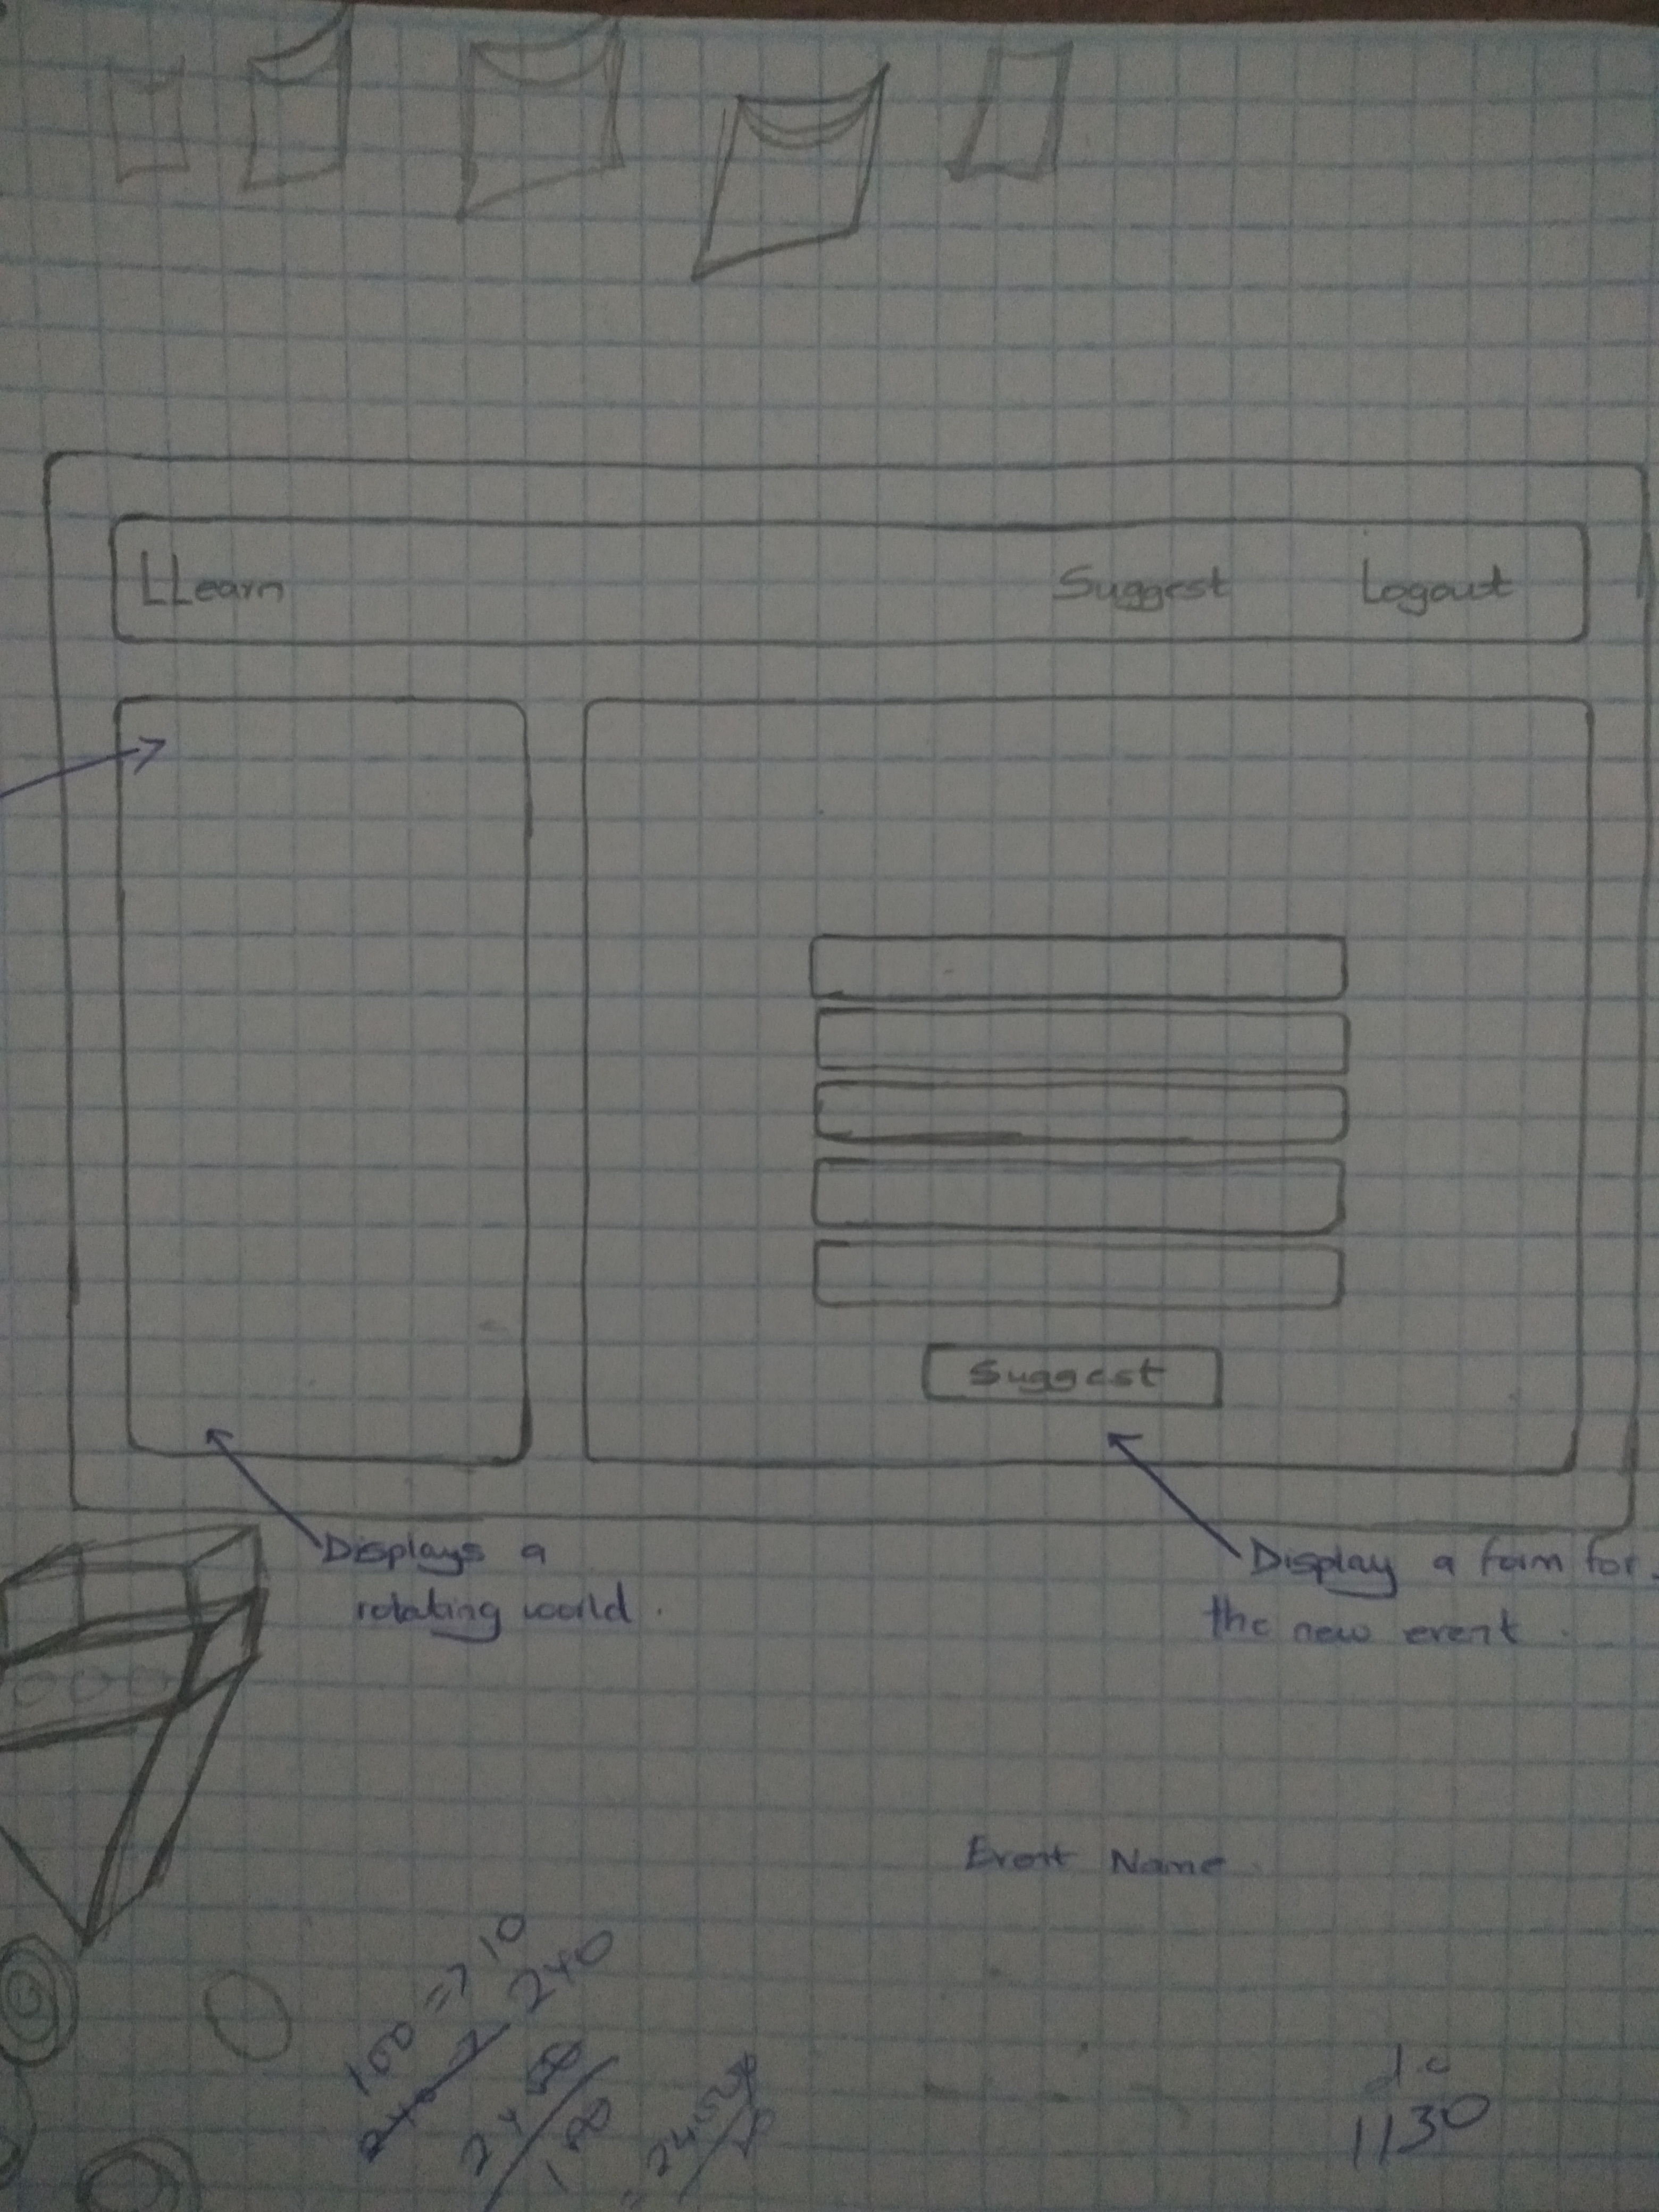 LLearn Suggest Logout
Suggest
Displays a
rotating world.
Display a form for
the new event.
Event Name
100 => 10
240
1130